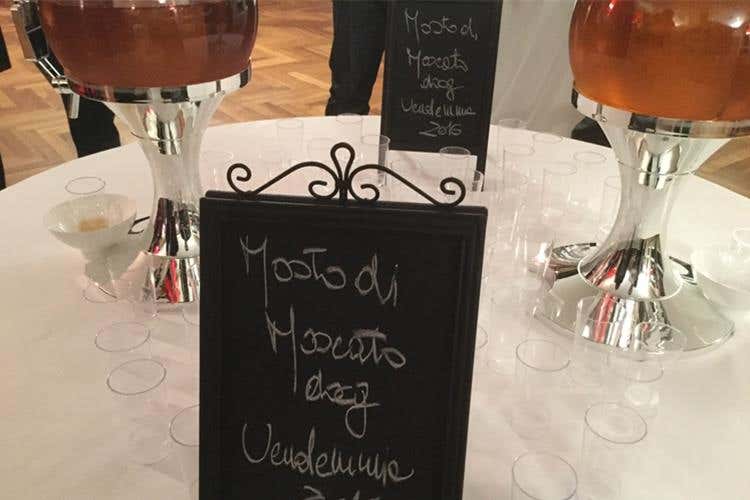 Mosto di
Moscato
docg
Vendemmia
2016
Mosto di
Moscato
docg
Vendemmia
2016